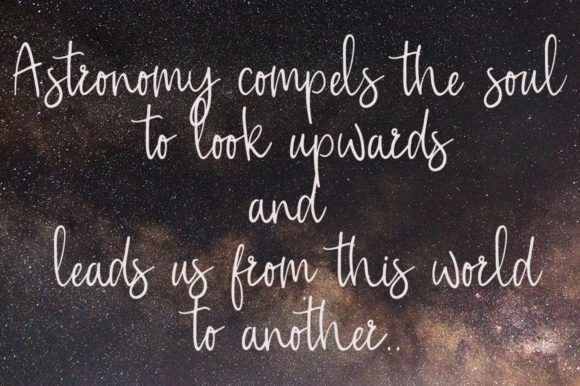 Astronomy compels the soul
to look upwards
and
leads us from this world
to another..